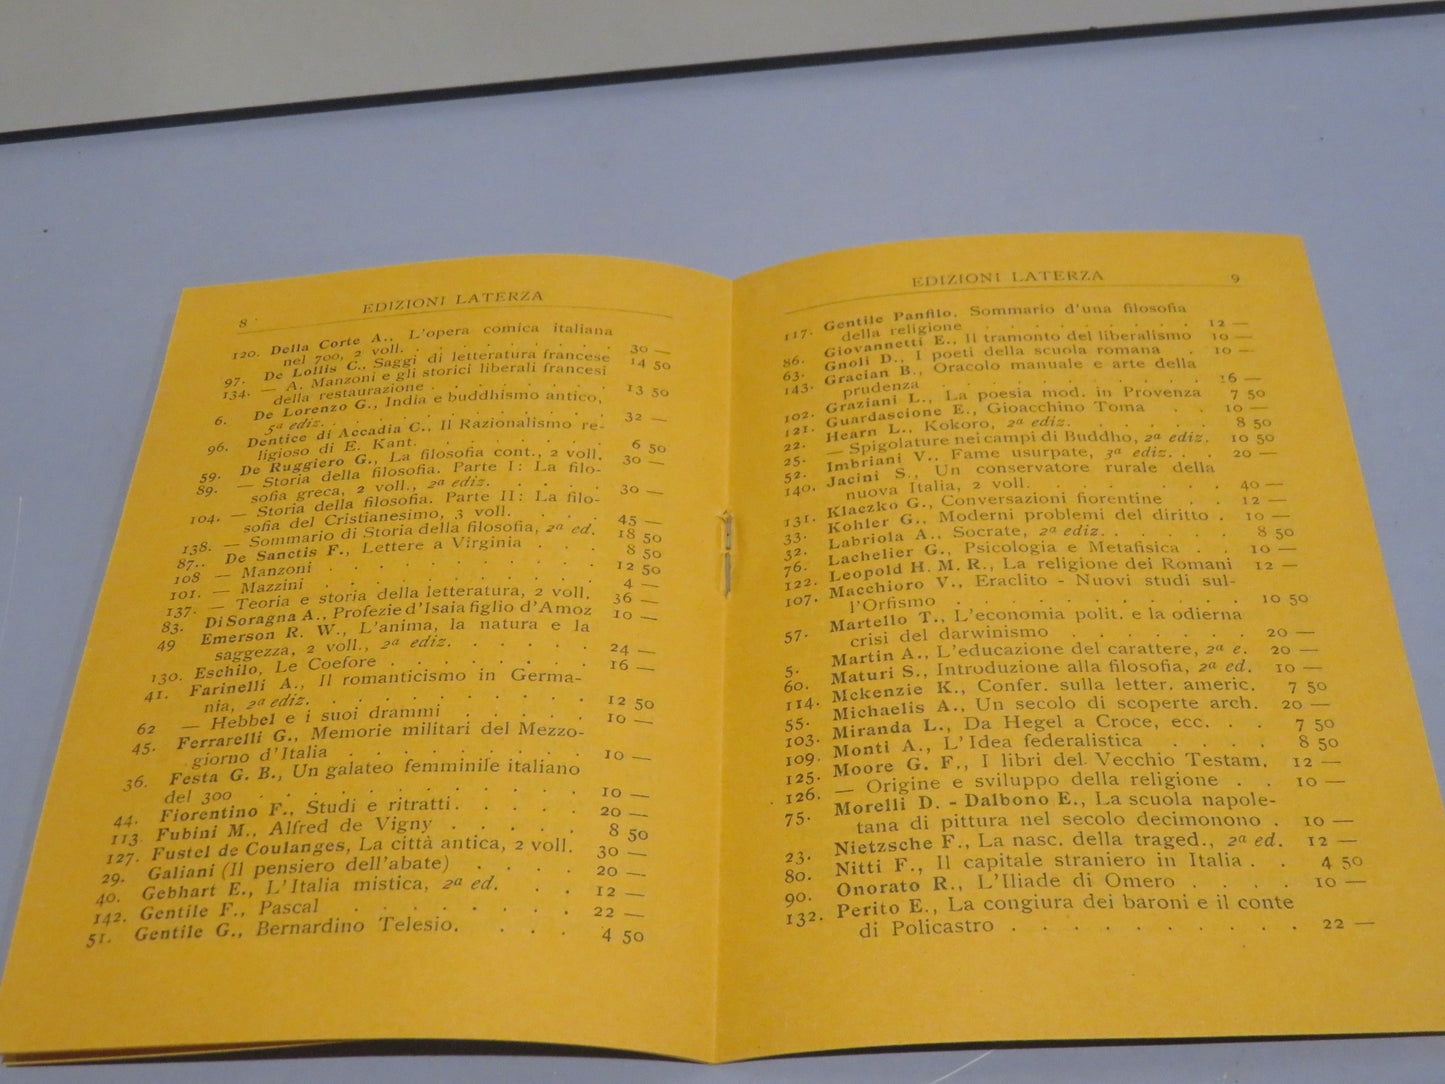 8
EDIZIONI LATERZA
120. Della Corte A., L'opera comica italiana
nel 700, 2 voll. . . . . . . . . 30 —
97. De Lollis C., Saggi di letteratura francese 14 50
134. — A. Manzoni e gli storici liberali francesi
della restaurazione . . . . . . . 13 50
6. De Lorenzo G., India e buddhismo antico,
5ª ediz. . . . . . . . . . . 32 —
96. Dentice di Accadia C., Il Razionalismo re-
ligioso di E. Kant. . . . . . . . 6 50
59. De Ruggiero G., La filosofia cont., 2 voll. 30 —
89. — Storia della filosofia. Parte I: La filo-
sofia greca, 2 voll., 2ª ediz. . . . . 30 —
104. — Storia della filosofia. Parte II: La filo-
sofia del Cristianesimo, 3 voll. . . . . 45 —
138. — Sommario di Storia della filosofia, 2ª ed. 18 50
87.. De Sanctis F., Lettere a Virginia . . . 8 50
108 — Manzoni . . . . . . . . . . 12 50
101. — Mazzini . . . . . . . . . . 4 —
137. — Teoria e storia della letteratura, 2 voll. 36 —
83. Di Soragna A., Profezie d'Isaia figlio d'Amoz 10 —
49 Emerson R. W., L'anima, la natura e la
saggezza, 2 voll., 2ª ediz. . . . . . 24 —
130. Eschilo, Le Coefore . . . . . . . 16 —
41. Farinelli A., Il romanticismo in Germa-
nia, 2ª ediz. . . . . . . . . . 12 50
62 — Hebbel e i suoi drammi . . . . . 10 —
45. Ferrarelli G., Memorie militari del Mezzo-
giorno d'Italia . . . . . . . . 10 —
36. Festa G. B., Un galateo femminile italiano
del 300 . . . . . . . . . . 10 —
44. Fiorentino F., Studi e ritratti. . . . . 20 —
113. Fubini M., Alfred de Vigny . . . . . 8 50
127. Fustel de Coulanges, La città antica, 2 voll. 30 —
29. Galiani (Il pensiero dell'abate) . . . . 20 —
40. Gebhart E., L'Italia mistica, 2ª ed. . . 12 —
142. Gentile F., Pascal . . . . . . . . 22 —
51. Gentile G., Bernardino Telesio. . . . . 4 50
EDIZIONI LATERZA
9
117. Gentile Panfilo. Sommario d'una filosofia
della religione . . . . . . . . . 12 —
86. Giovannetti E., Il tramonto del liberalismo 10 —
63. Gnoli D., I poeti della scuola romana . 10 —
143. Gracian B., Oracolo manuale e arte della
prudenza . . . . . . . . . . . 16 —
102. Graziani L., La poesia mod. in Provenza 7 50
121. Guardascione E., Gioacchino Toma . . 10 —
22. Hearn L., Kokoro, 2ª ediz. . . . . . 8 50
25. — Spigolature nei campi di Buddho, 2ª ediz. 10 50
52. Imbriani V.. Fame usurpate, 3ª ediz. . . 20 —
140. Jacini S., Un conservatore rurale della
nuova Italia, 2 voll. . . . . . . . 40 —
131. Klaczko G., Conversazioni fiorentine . . 12 —
33. Kohler G., Moderni problemi del diritto . 10 —
32. Labriola A., Socrate, 2ª ediz. . . . . . 8 50
76. Lachelier G., Psicologia e Metafisica . . 10 —
122. Leopold H. M. R., La religione dei Romani 12 —
107. Macchioro V., Eraclito - Nuovi studi sul-
l'Orfismo . . . . . . . . . . . 10 50
57. Martello T., L'economia polit. e la odierna
crisi del darwinismo . . . . . . . 20 —
5. Martin A., L'educazione del carattere, 2ª e. 20 —
60. Maturi S., Introduzione alla filosofia, 2ª ed. 10 —
114. Mckenzie K., Confer. sulla letter. americ. 7 50
55. Michaelis A., Un secolo di scoperte arch. 20 —
103. Miranda L., Da Hegel a Croce, ecc. . . 7 50
109. Monti A., L'Idea federalistica . . . . 8 50
125. Moore G. F., I libri del Vecchio Testam. 12 —
126. — Origine e sviluppo della religione . . 10 —
75. Morelli D. - Dalbono E., La scuola napole-
tana di pittura nel secolo decimonono . 10 —
23. Nietzsche F., La nasc. della traged., 2ª ed. 12 —
80. Nitti F., Il capitale straniero in Italia . . 4 50
90. Onorato R., L'Iliade di Omero . . . . 10 —
132. Perito E., La congiura dei baroni e il conte
di Policastro . . . . . . . . . . 22 —